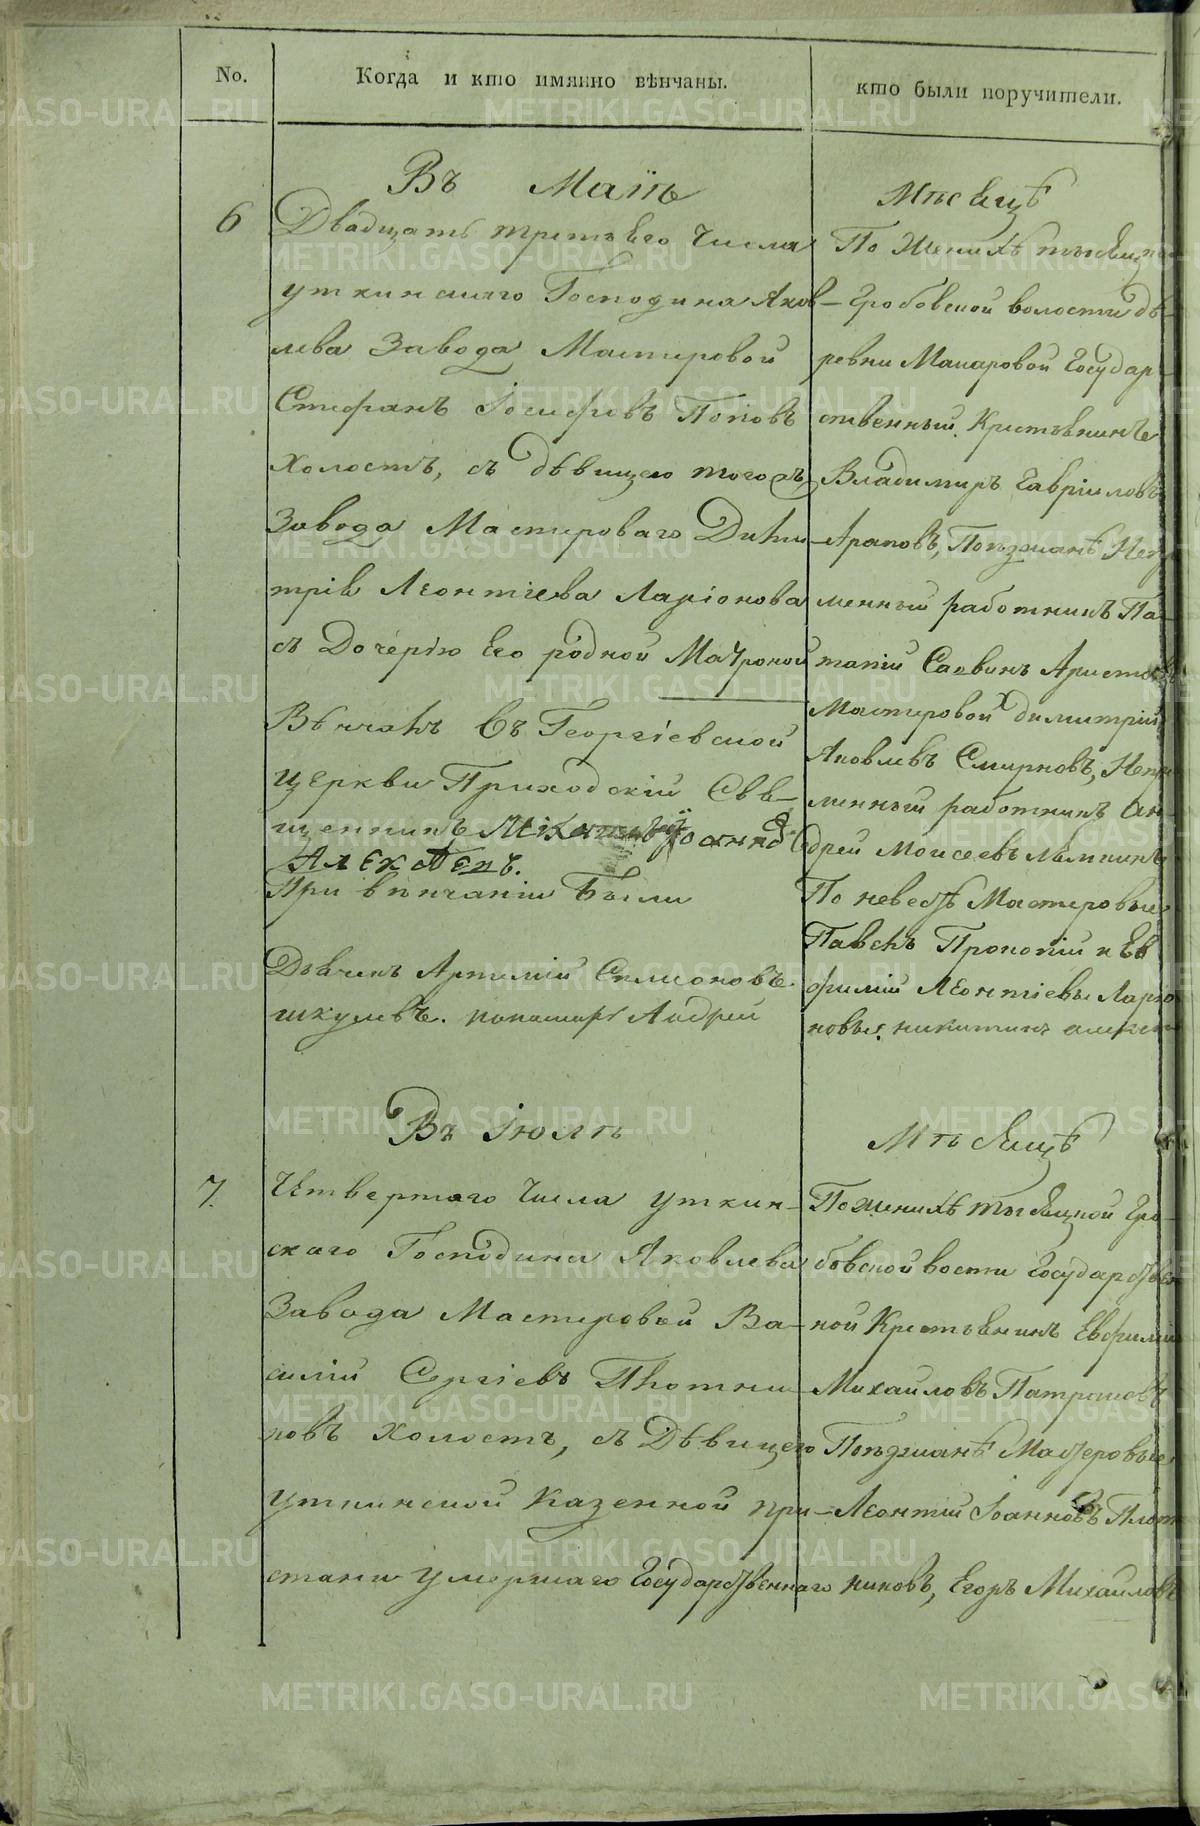 No.
Когда и кто имянно вѣнчаны.
кто были поручители.
Въ Маiѣ
6
Двадцать третьяго Числа
уткинскаго Господина Яков-
лева Завода Мастеровой
Стефанъ Iосифовъ Поповъ
холостъ, съ дѣвицею того
Завода Мастероваго Дими-
трiя Леонтiева Ларiонова
съ Дочерiю Его родной Матроной
Вѣнчалъ Въ Георгiевской
церкви Приходскiй Свя-
щенникъ Iоаннъ
При вѣнчанiи Были
Дьячекъ Артемiй Симеоновъ
пономарь Андрей
Мѣсяцѣ
По Женихѣ тысяцкой
Гробовской волости де-
ревни Макаровой Государ-
ственный Крестьянинъ
Владимиръ Гаврiиловъ
Араповъ, Поѣзжанѣ Непре
менный работникъ По-
тапiй Саввинъ
Мастеровой Димитрiй
Яковлевъ Смирновъ, Непре
менный работникъ Ан-
дрей Моисеевъ
По невестѣ Мастеровые
Павелъ Прокопiй и Ев
фимiй Леонтiевы Ларiо
новы, никитинъ
Въ Iюлѣ
7.
Четвертаго Числа уткин-
скаго Господина Яковлева
Завода Мастеровой Ва-
силiй Сергiевъ Плотни-
ковъ холостъ, съ Дѣвицею
Уткинской Казенной при-
стани Умершаго Государственнаго
Мѣсяцѣ
По женихѣ тысяцкой Гро-
бовской вости Государствен
ной Крестьянинъ Евфимiй
Михайловъ Патрашовъ
Поѣзжанѣ Мастеровые
Леонтiй Iоанновъ Плот
никовъ, Егоръ Михайловъ
METRIKI.GASO-URAL.RU